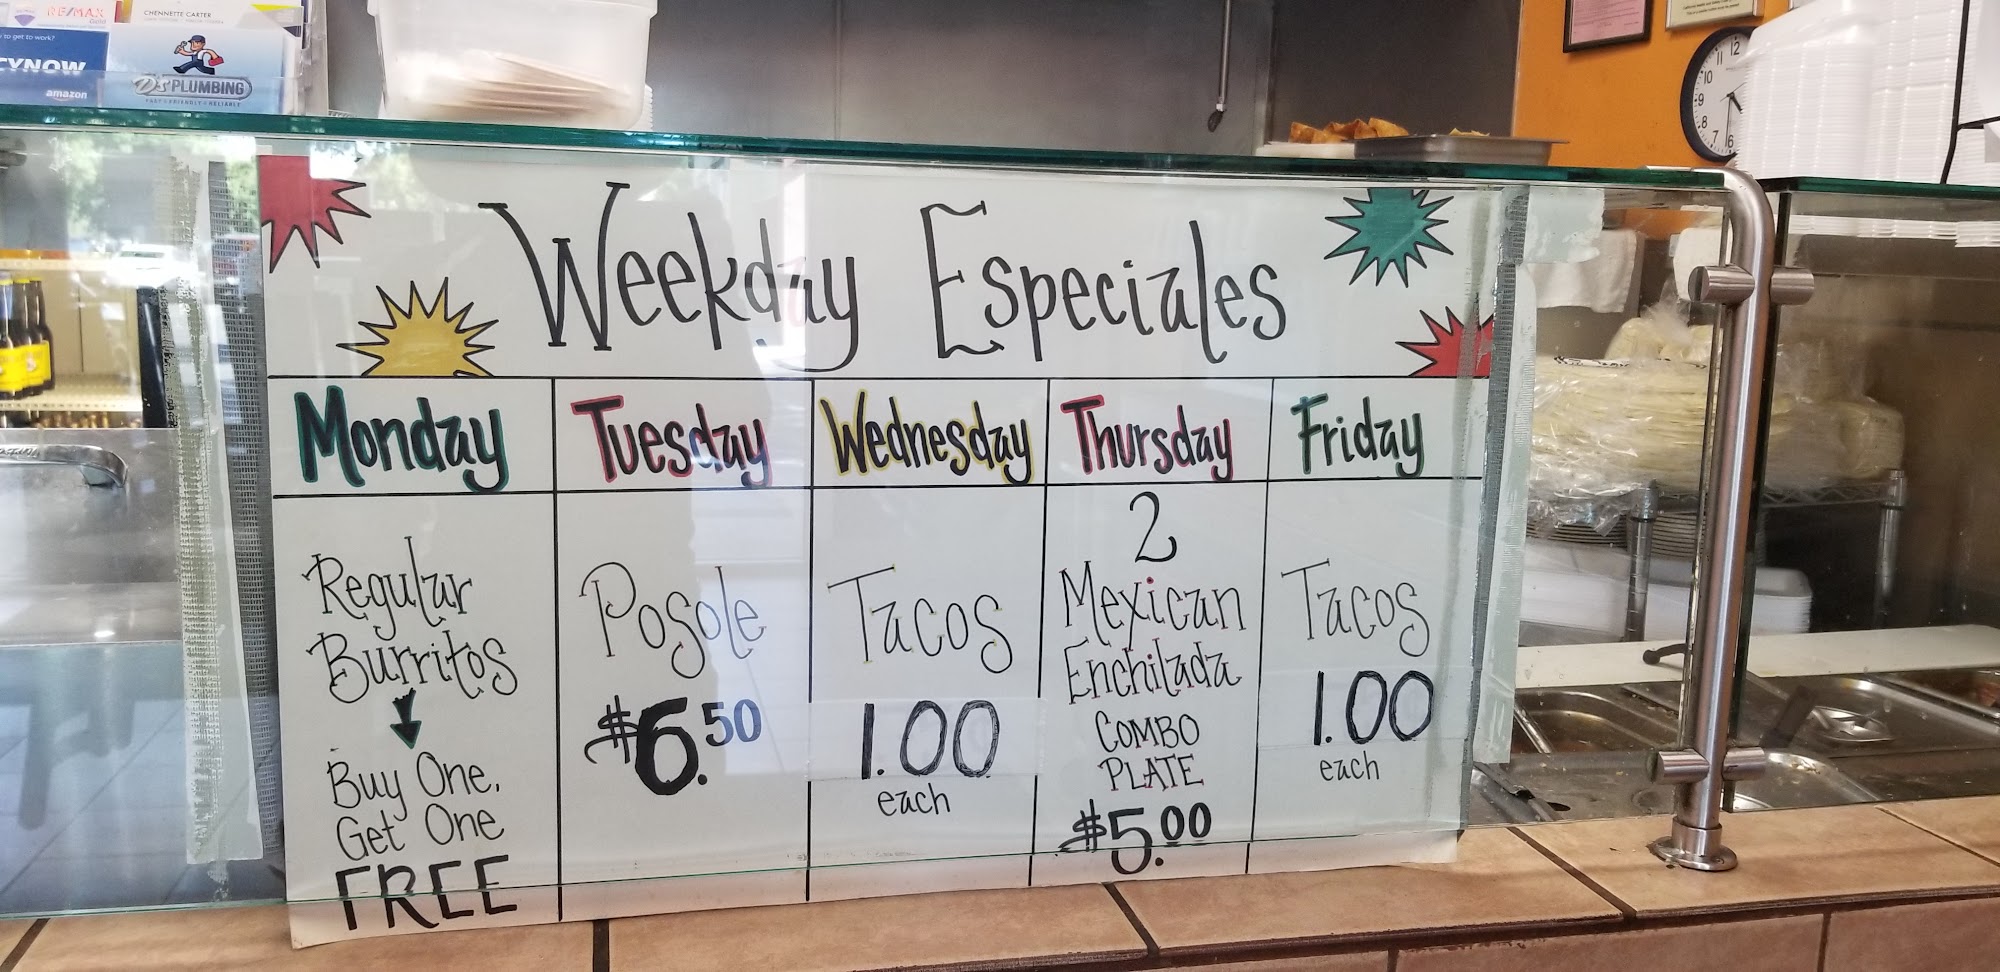 RE/MAX
Gold
CHENNETTE CARTER
to get to work?
CYNOW
amazon
D's PLUMBING
FAST • FRIENDLY • RELIABLE
11 12
10
9
8
7 6
Weekday Especiales
Monday
Tuesday
Wednesday
Thursday
Friday
Regular
Burritos
Buy One,
Get One
FREE
Posole
$6.50
Tacos
1.00
each
2
Mexican
Enchilada
COMBO
PLATE
$5.00
Tacos
1.00
each